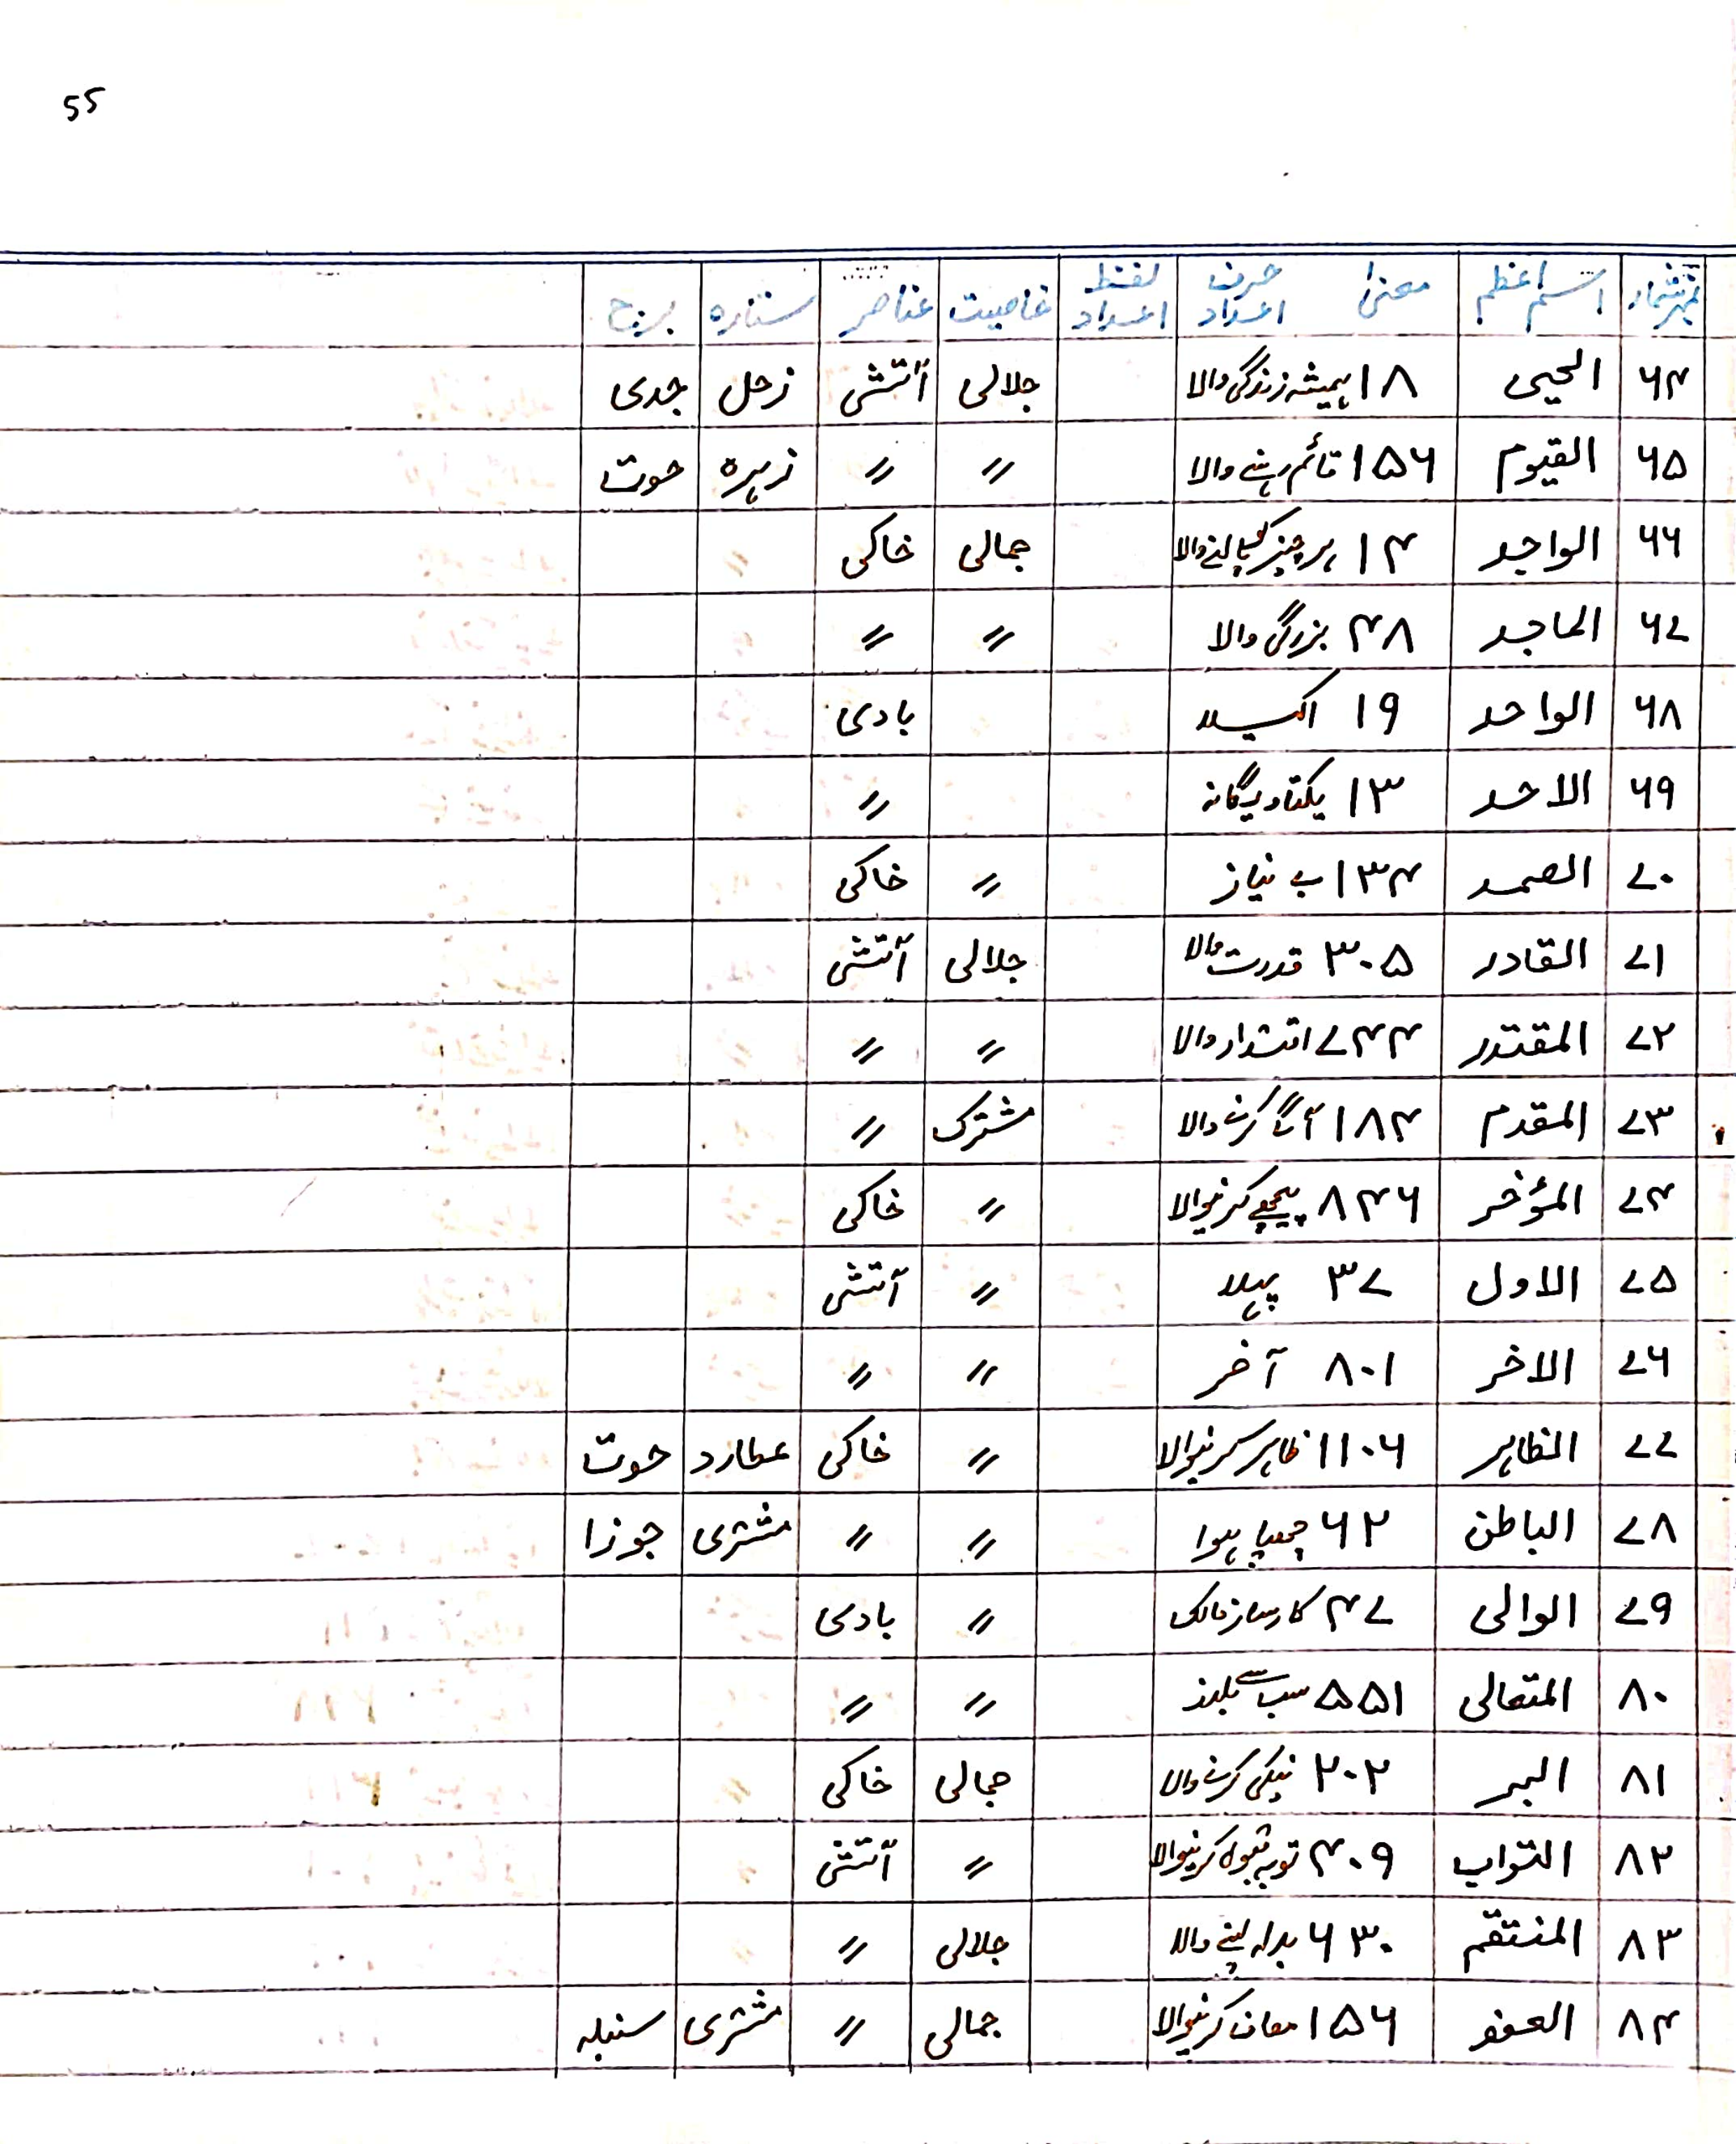 55
نمبرشمار اسم اعظم معنی حرف اعداد لفظ اعداد خاصیت عناصر ستارہ برج
۶۴ الحیی ۱۸ ہمیشہ زندگی والا جلالی آتشی زحل جدی
۶۵ القیوم ۱۵۶ قائم رہنے والا 〃 〃 زہرہ حوت
۶۶ الواجد ۱۴ ہر چیز کو پالنے والا جمالی خاکی
۶۷ الماجد ۴۸ بزرگی والا 〃 〃
۶۸ الواحد ۱۹ اکیلا بادی
۶۹ الاحد ۱۳ یکتا و یگانہ 〃
۷۰ الصمد ۱۳۴ بے نیاز 〃 خاکی
۷۱ القادر ۳۰۵ قدرت والا جلالی آتشی
۷۲ المقتدر ۷۴۴ اقتدار والا 〃 〃
۷۳ المقدم ۱۸۴ آگے کرنے والا مشترک 〃
۷۴ المؤخر ۸۴۶ پیچھے کرنیوالا 〃 خاکی
۷۵ الاول ۳۷ پہلا 〃 آتشی
۷۶ الاخر ۸۰۱ آخر 〃 〃
۷۷ الظاہر ۱۱۰۶ ظاہر کرنیوالا 〃 خاکی عطارد حوت
۷۸ الباطن ۶۲ چھپا ہوا 〃 〃 مشتری جوزا
۷۹ الوالی ۴۷ کارساز مالک 〃 بادی
۸۰ المتعالی ۵۵۱ سب سے بلند 〃 〃
۸۱ البر ۲۰۲ نیکی کرنے والا جمالی خاکی
۸۲ التواب ۴۰۹ توبہ قبول کرنیوالا 〃 آتشی
۸۳ المنتقم ۶۳۰ بدلہ لینے والا جلالی 〃
۸۴ العفو ۱۵۶ معاف کرنیوالا جمالی 〃 مشتری سنبلہ